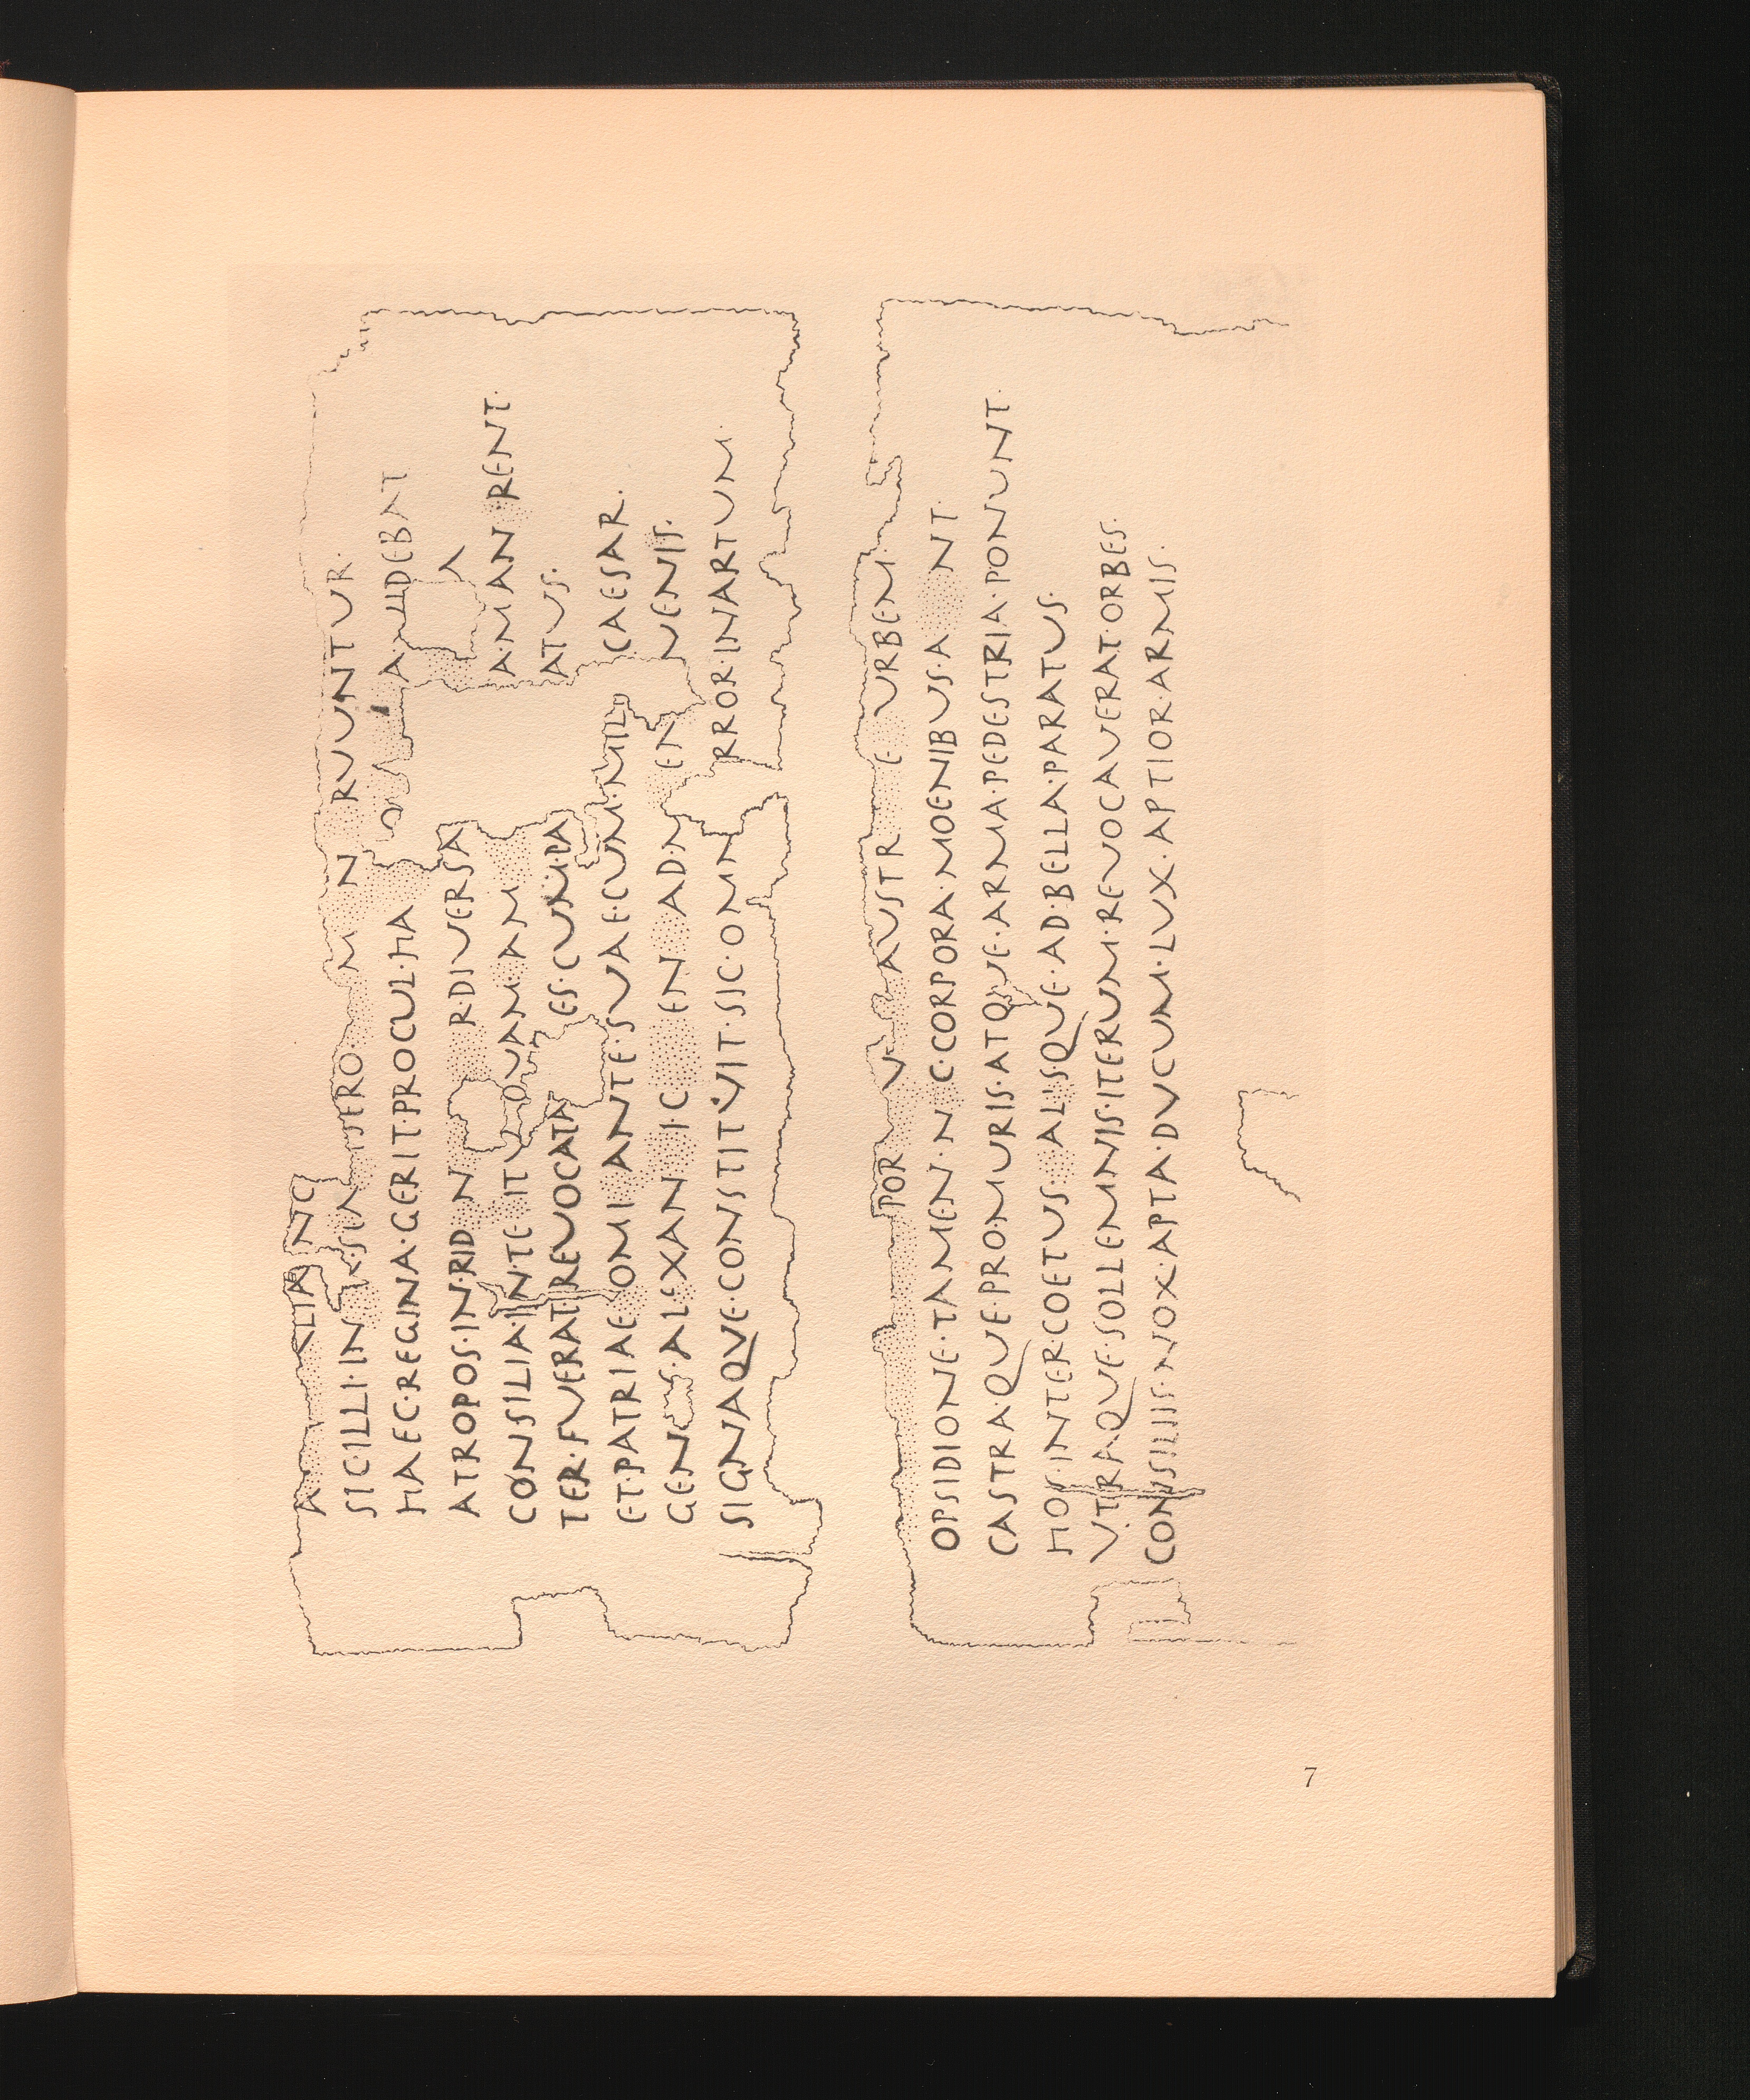 SIC·ILLI·IN RUUNTUR·
HAEC·REGINA·GERIT·PROCUL·HA A·VIDEBAT
ATROPOS·IN·RID N R·DIVERSA A
CONSILIA·IN·TE IT QUAM·AM A·MAN RENT·
TER·FUERAT·REUOCATA ES·CUM·PA ATUS·
ET·PATRIAE· OMI ANTE·SUAE·CUM·MILI CAESAR·
GENS·AL XAN I·C EN AD·M EN UENIS·
SIGNAQUE·CONSTITUIT·SIC·OMN RROR·IN·ARTUM·
POR V AUSTR E URBEM·
OPSIDIONE·TAMEN·N C·CORPORA·MOENIBUS·A NT·
CASTRAQUE·PRO·MURIS·ATQUE·ARMA·PEDESTRIA·PONUNT·
HOS·INTER·COETUS· ALISQUE·AD·BELLA·PARATUS·
UTRAQUE·SOLLEMNIS·ITERUM·REVOCAVERAT·ORBES·
CONSILIIS·NOX·APTA·DUCUM·LUX·APTIOR·ARMIS·
7